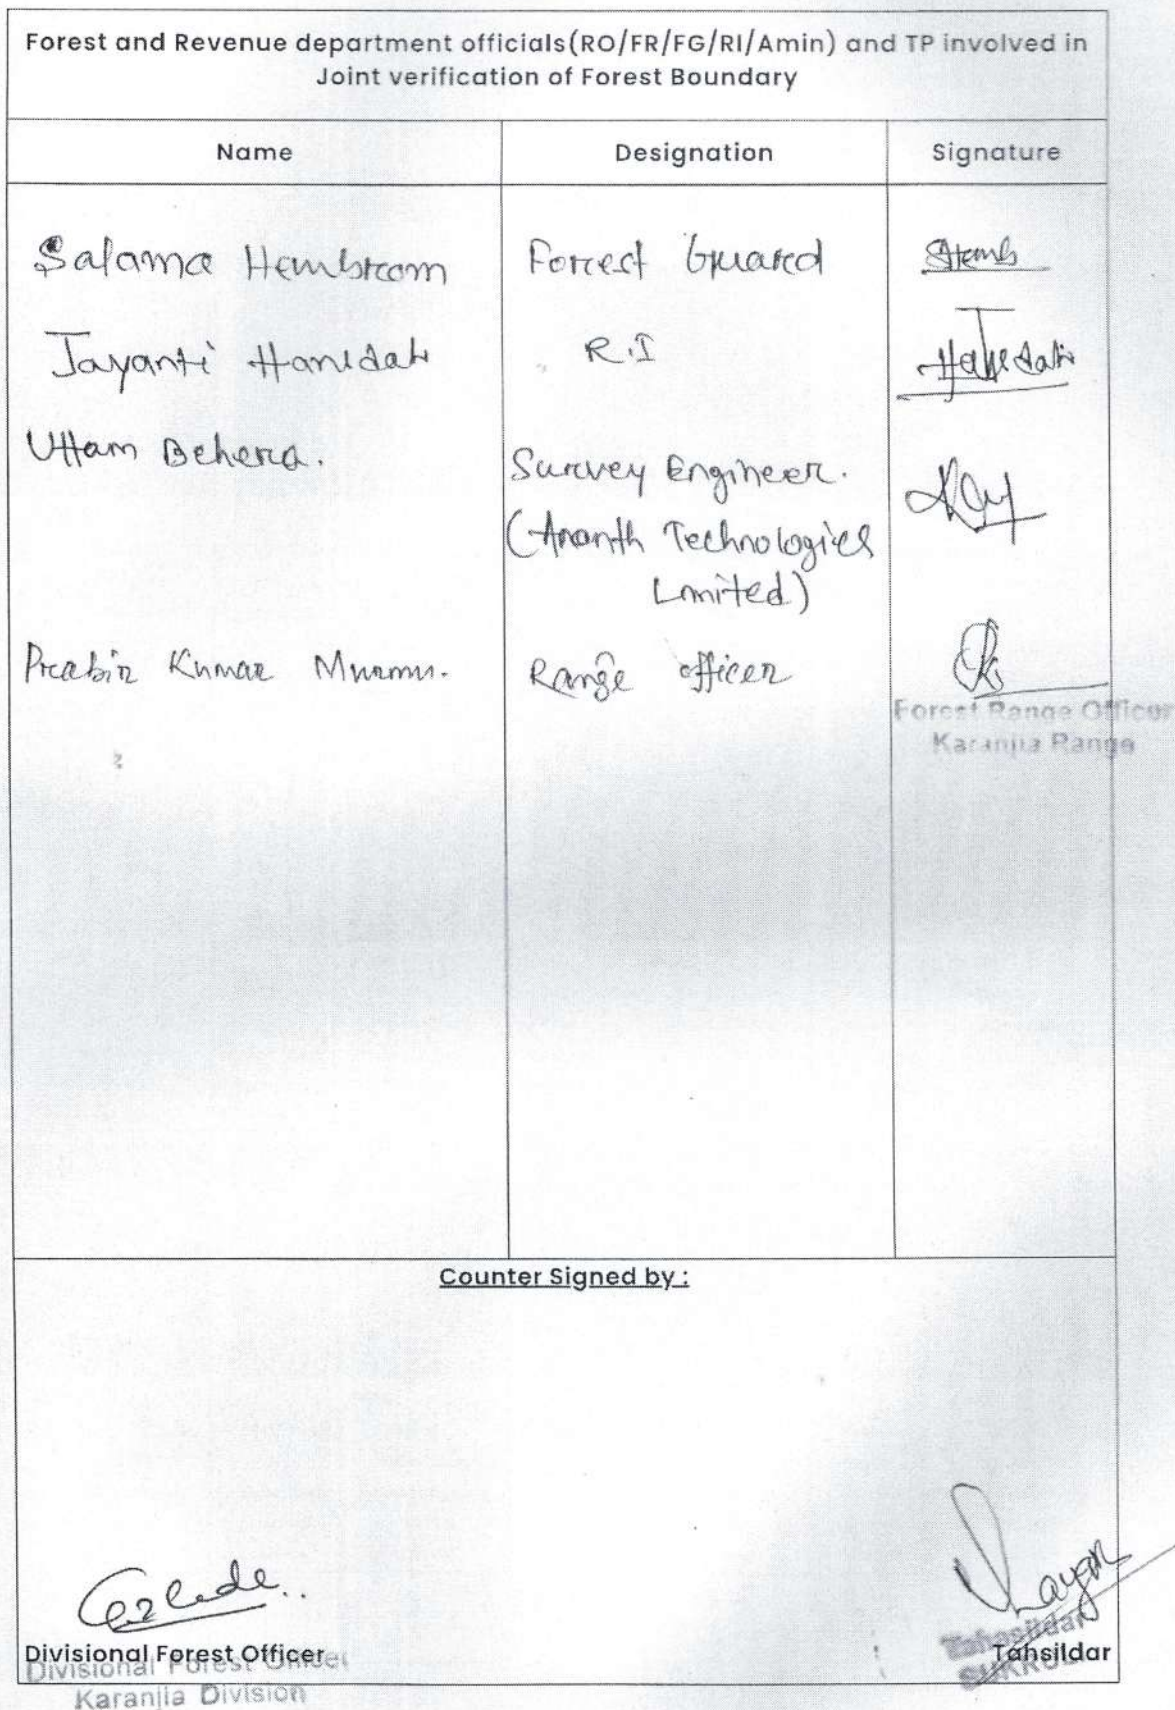 Forest and Revenue department officials(RO/FR/FG/RI/Amin) and TP involved in
Joint verification of Forest Boundary
Name Designation Signature
Salama Hembrcom Forcest Guarcd
Jayanti R.I
Uttam Behera.
Survey Engineer.
(Ananth Technologies
Limited)
Prcabir Kumar Murmu. Range officer
Forest Range Officer
Karanjia Range
Counter Signed by :
Divisional Forest Officer
Divisional Forest Officer
Karanjia Division
Tahasildar
Tahsildar